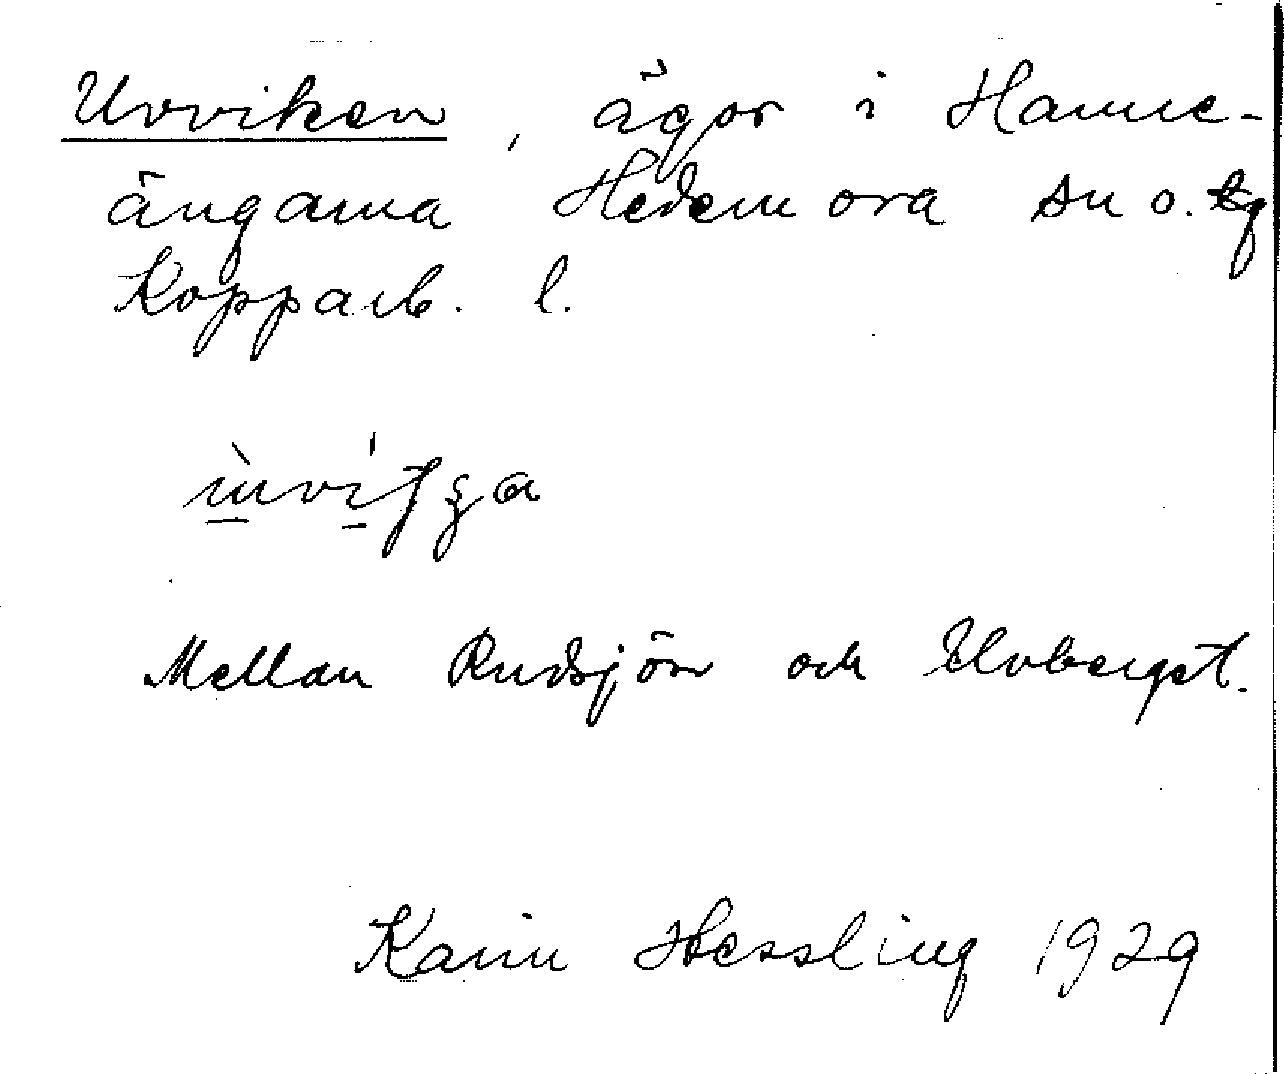 Uvviken, ägor i Hamre-
ängarna Hedemora sn o. tg
Kopparb. l.
Mellan Rudsjön och Uvbergst.
Karin Hessling 1929